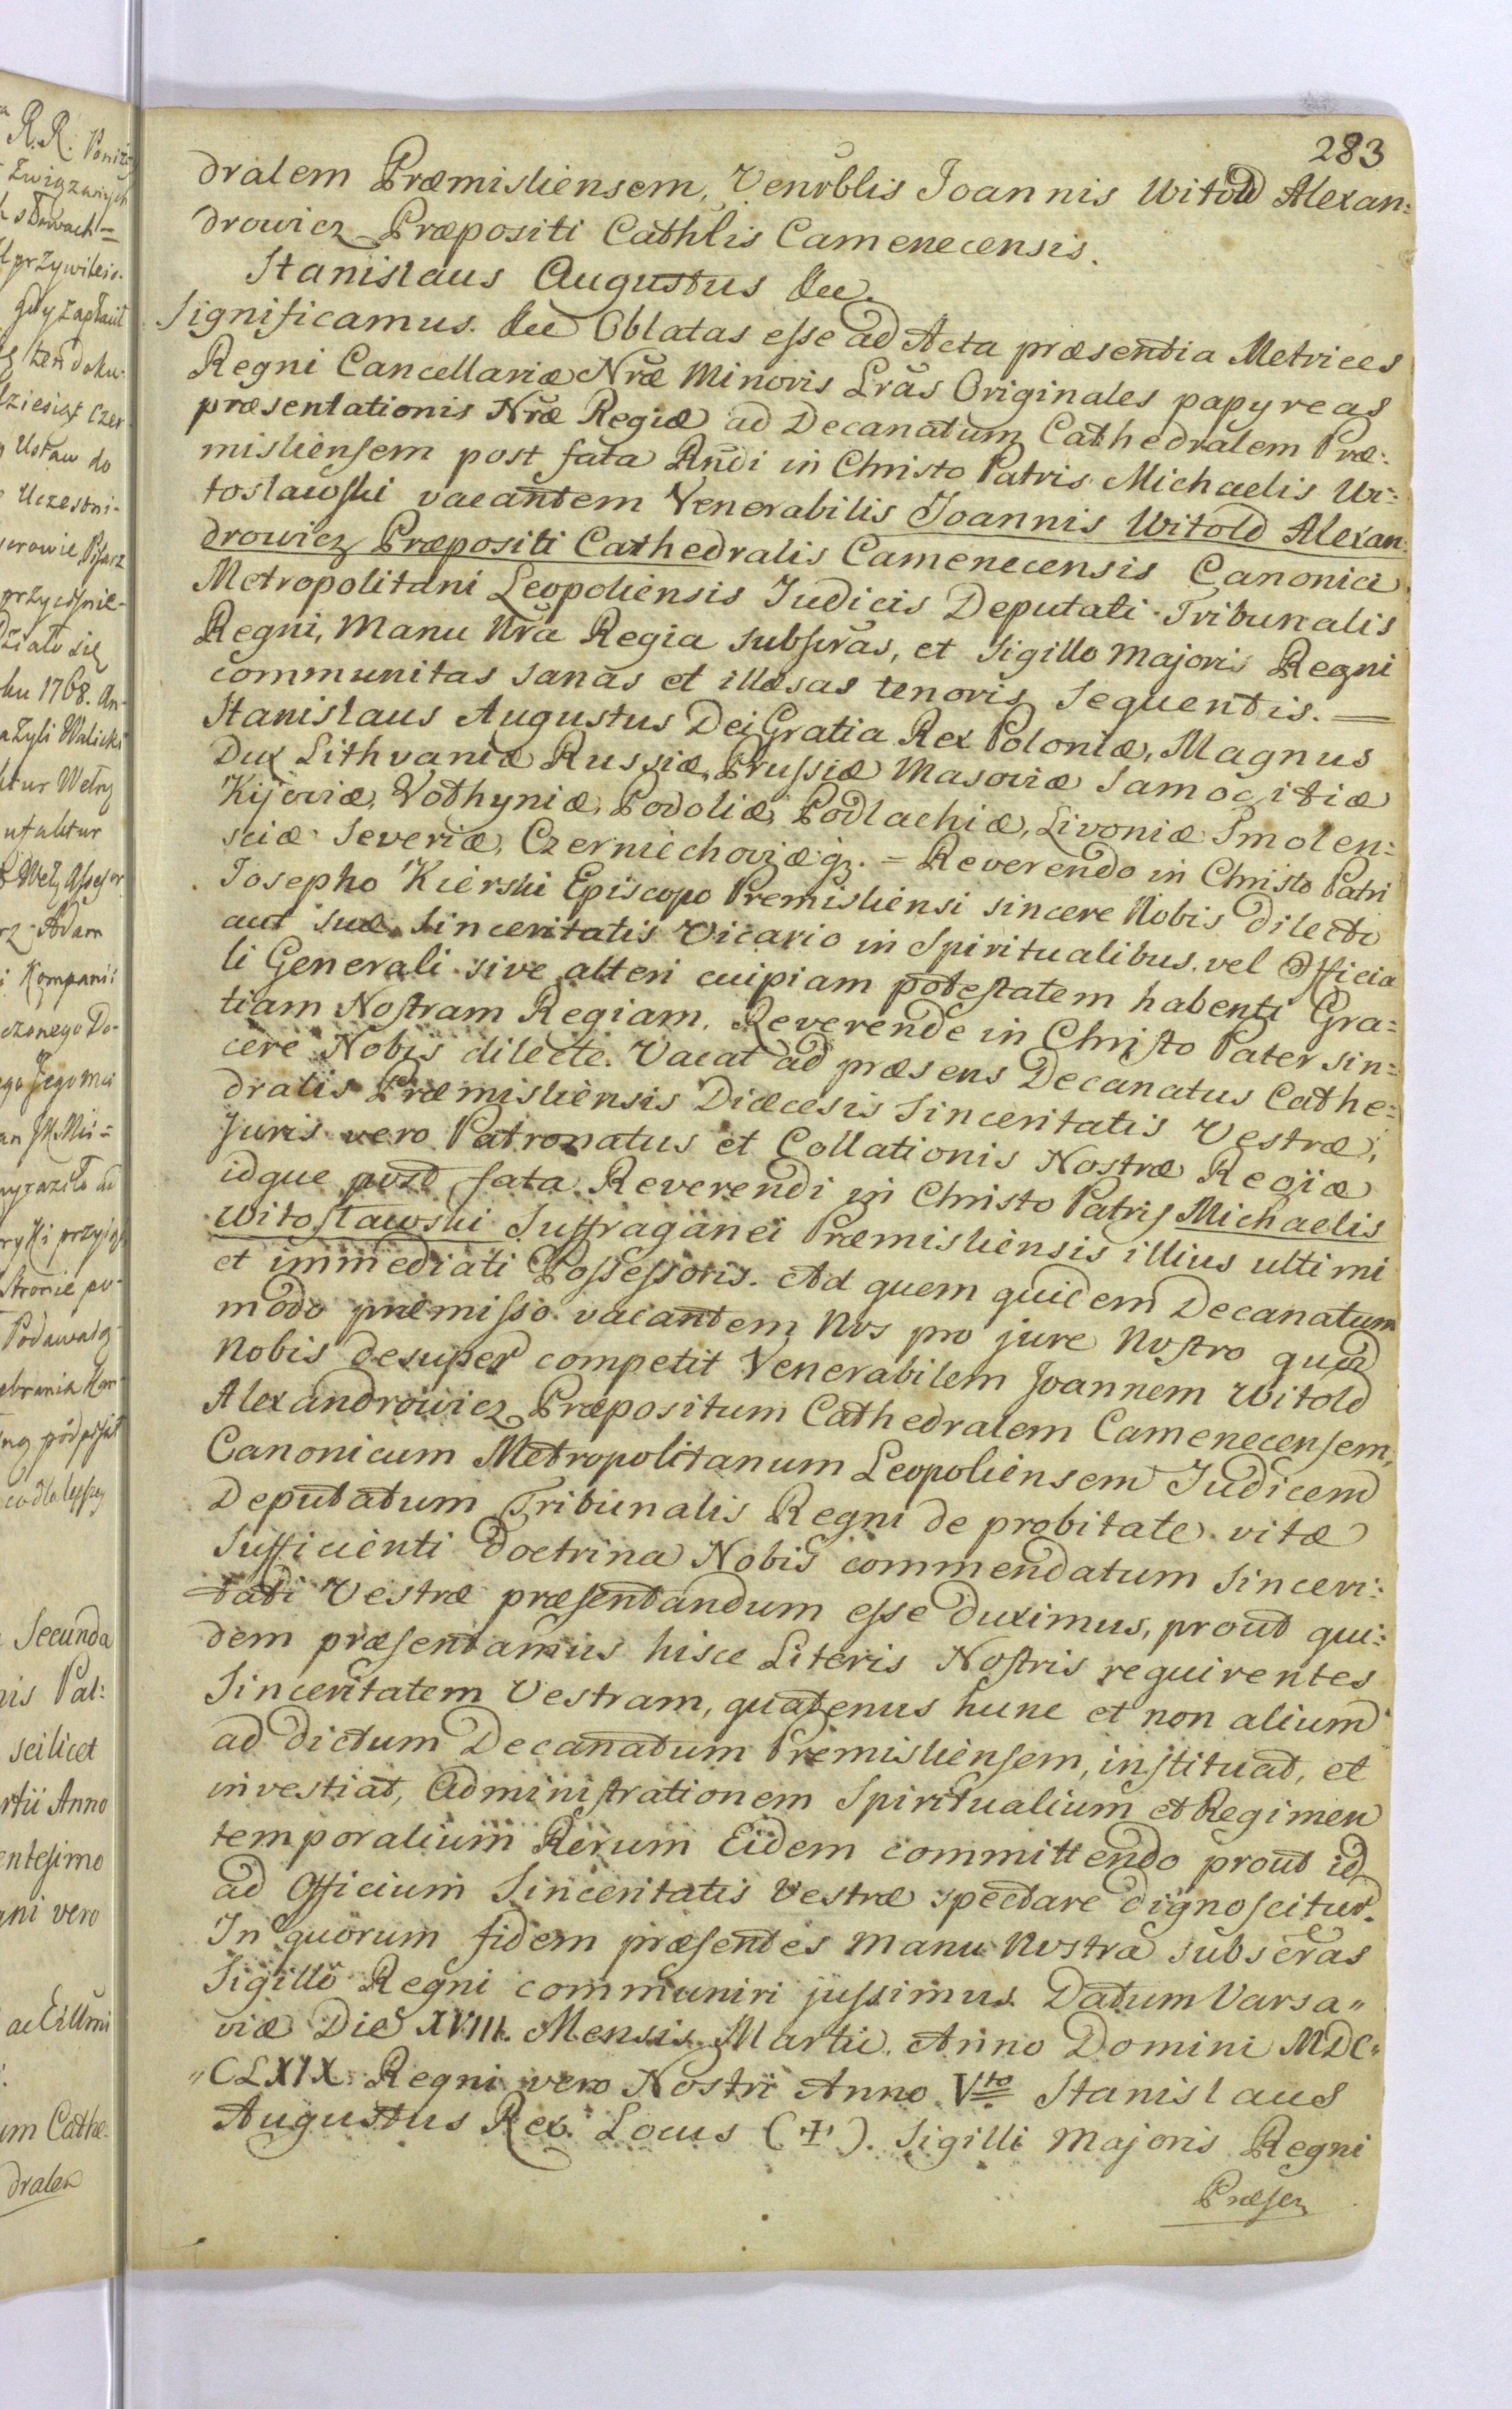 283
dralem Præmisliensem, Venrblis Joannis Witold Alexan:
drowicz Præpositi Cathlis Camenecensis.
Stanislaus Augustus &c.
Significamus. &c Oblatas esse ad Acta præsentia Metrices
Regni Cancellariæ Nræ Minoris Lras Originales papyreas
præsentationis Nræ Regiæ ad Decanatum Cathedralem Præ:
misliensem post fata Rndi in Christo Patris Michaelis Wi:
toslawski vacantem Venerabilis Joannis Witold Alexan:
drowicz Præpositi Cathedralis Camenecensis Canonici
Metropolitani Leopoliensis Judicis Deputati Tribunalis
Regni, Manu Nra Regia subscras, et Sigillo Majoris Regni
communitas sanas et illæsas tenoris sequentis. =
Stanislaus Augustus Dei Gratia Rex Poloniæ, Magnus
Dux Lithvaniæ Russiæ, Prussiæ Masoviæ Samogitiæ
Kijoviæ, Volhyniæ, Podoliæ, Podlachiæ, Livoniæ Smolen:
sciæ Severiæ, Czerniechoviæq. = Reverendo in Christo Patri
Josepho Kierski Episcopo Premisliensi sincere Nobis dilecto
aut suæ Sinceritatis Vicario in Spiritualibus, vel Officia
li Generali sive alteri cuipiam potestatem habenti Gra=
tiam Nostram Regiam. Reverende in Christo Pater sin=
cere Nobis dilecte. Vacat ad præsens Decanatus Cathe=
dralis Præmisliensis Diæcesis Sinceritatis Vestræ,
Juris vero Patronatus et Collationis Nostræ Regiæ
idque post fata Reverendi in Christo Patris Michaelis
Witoslawski Suffraganei Præmisliensis illius ultimi
et immediati Possessoris. Ad quem quidem Decanatum
modo præmisso vacantem Nos pro jure Nostro quod
Nobis desuper competit Venerabilem Joannem Witold
Alexandrowicz Præpositum Cathedralem Camenecensem,
Canonicum Metropolitanum Leopoliensem Judicem
Deputatum Tribunalis Regni de probitate vitæ
Sufficienti doctrina Nobis commendatum Sinceri:
tati Vestræ præsentandum esse duximus, prout qui:
dem præsentamus hisce Literis Nostris requirentes
Sinceritatem Vestram, quatenus hunc et non alium
ad dictum Decanatum Premisliensem, instituat, et
investiat, Administrationem Spiritualium et Regimen
temporalium Rerum Eidem committendo prout id
ad Officium Sinceritatis Vestræ spectare dignoscitur.
In quorum fidem præsentes Manu Nostra subscras
Sigillo Regni communiri jussimus. Datum Varsa"
viæ Die XVIII. Mensis Martii. Anno Domini MDC"
"CLXIX. Regni vero Nostri Anno Vto Stanislaus
Augustus Rex. Locus (+). Sigilli Majoris Regni
Præsen